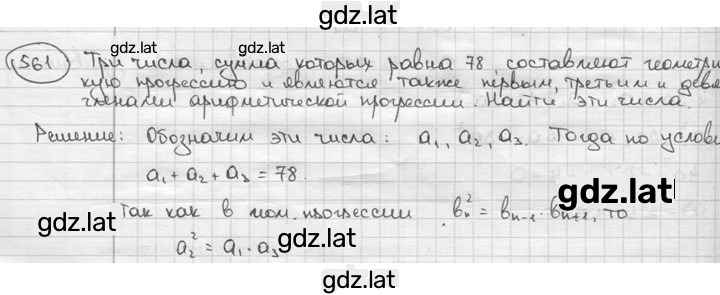 gdz.lat
1561 Три числа, сумма которых равна 78, составляют геометри
gdz.lat
gdz.lat
кую прогрессию и являются также первым, третьим и девя
членами арифметической прогрессии. Найти эти числа.
gdz.lat
gdz.lat
Решение: Обозначим эти числа: a₁, a₂, a₃. Тогда по услови
a₁ + a₂ + a₃ = 78.
gdz.lat
Так как в геом. прогрессии bₙ² = bₙ₋₁ · bₙ₊₁, то
gdz.lat
a₂² = a₁ · a₃
gdz.lat
gdz.lat